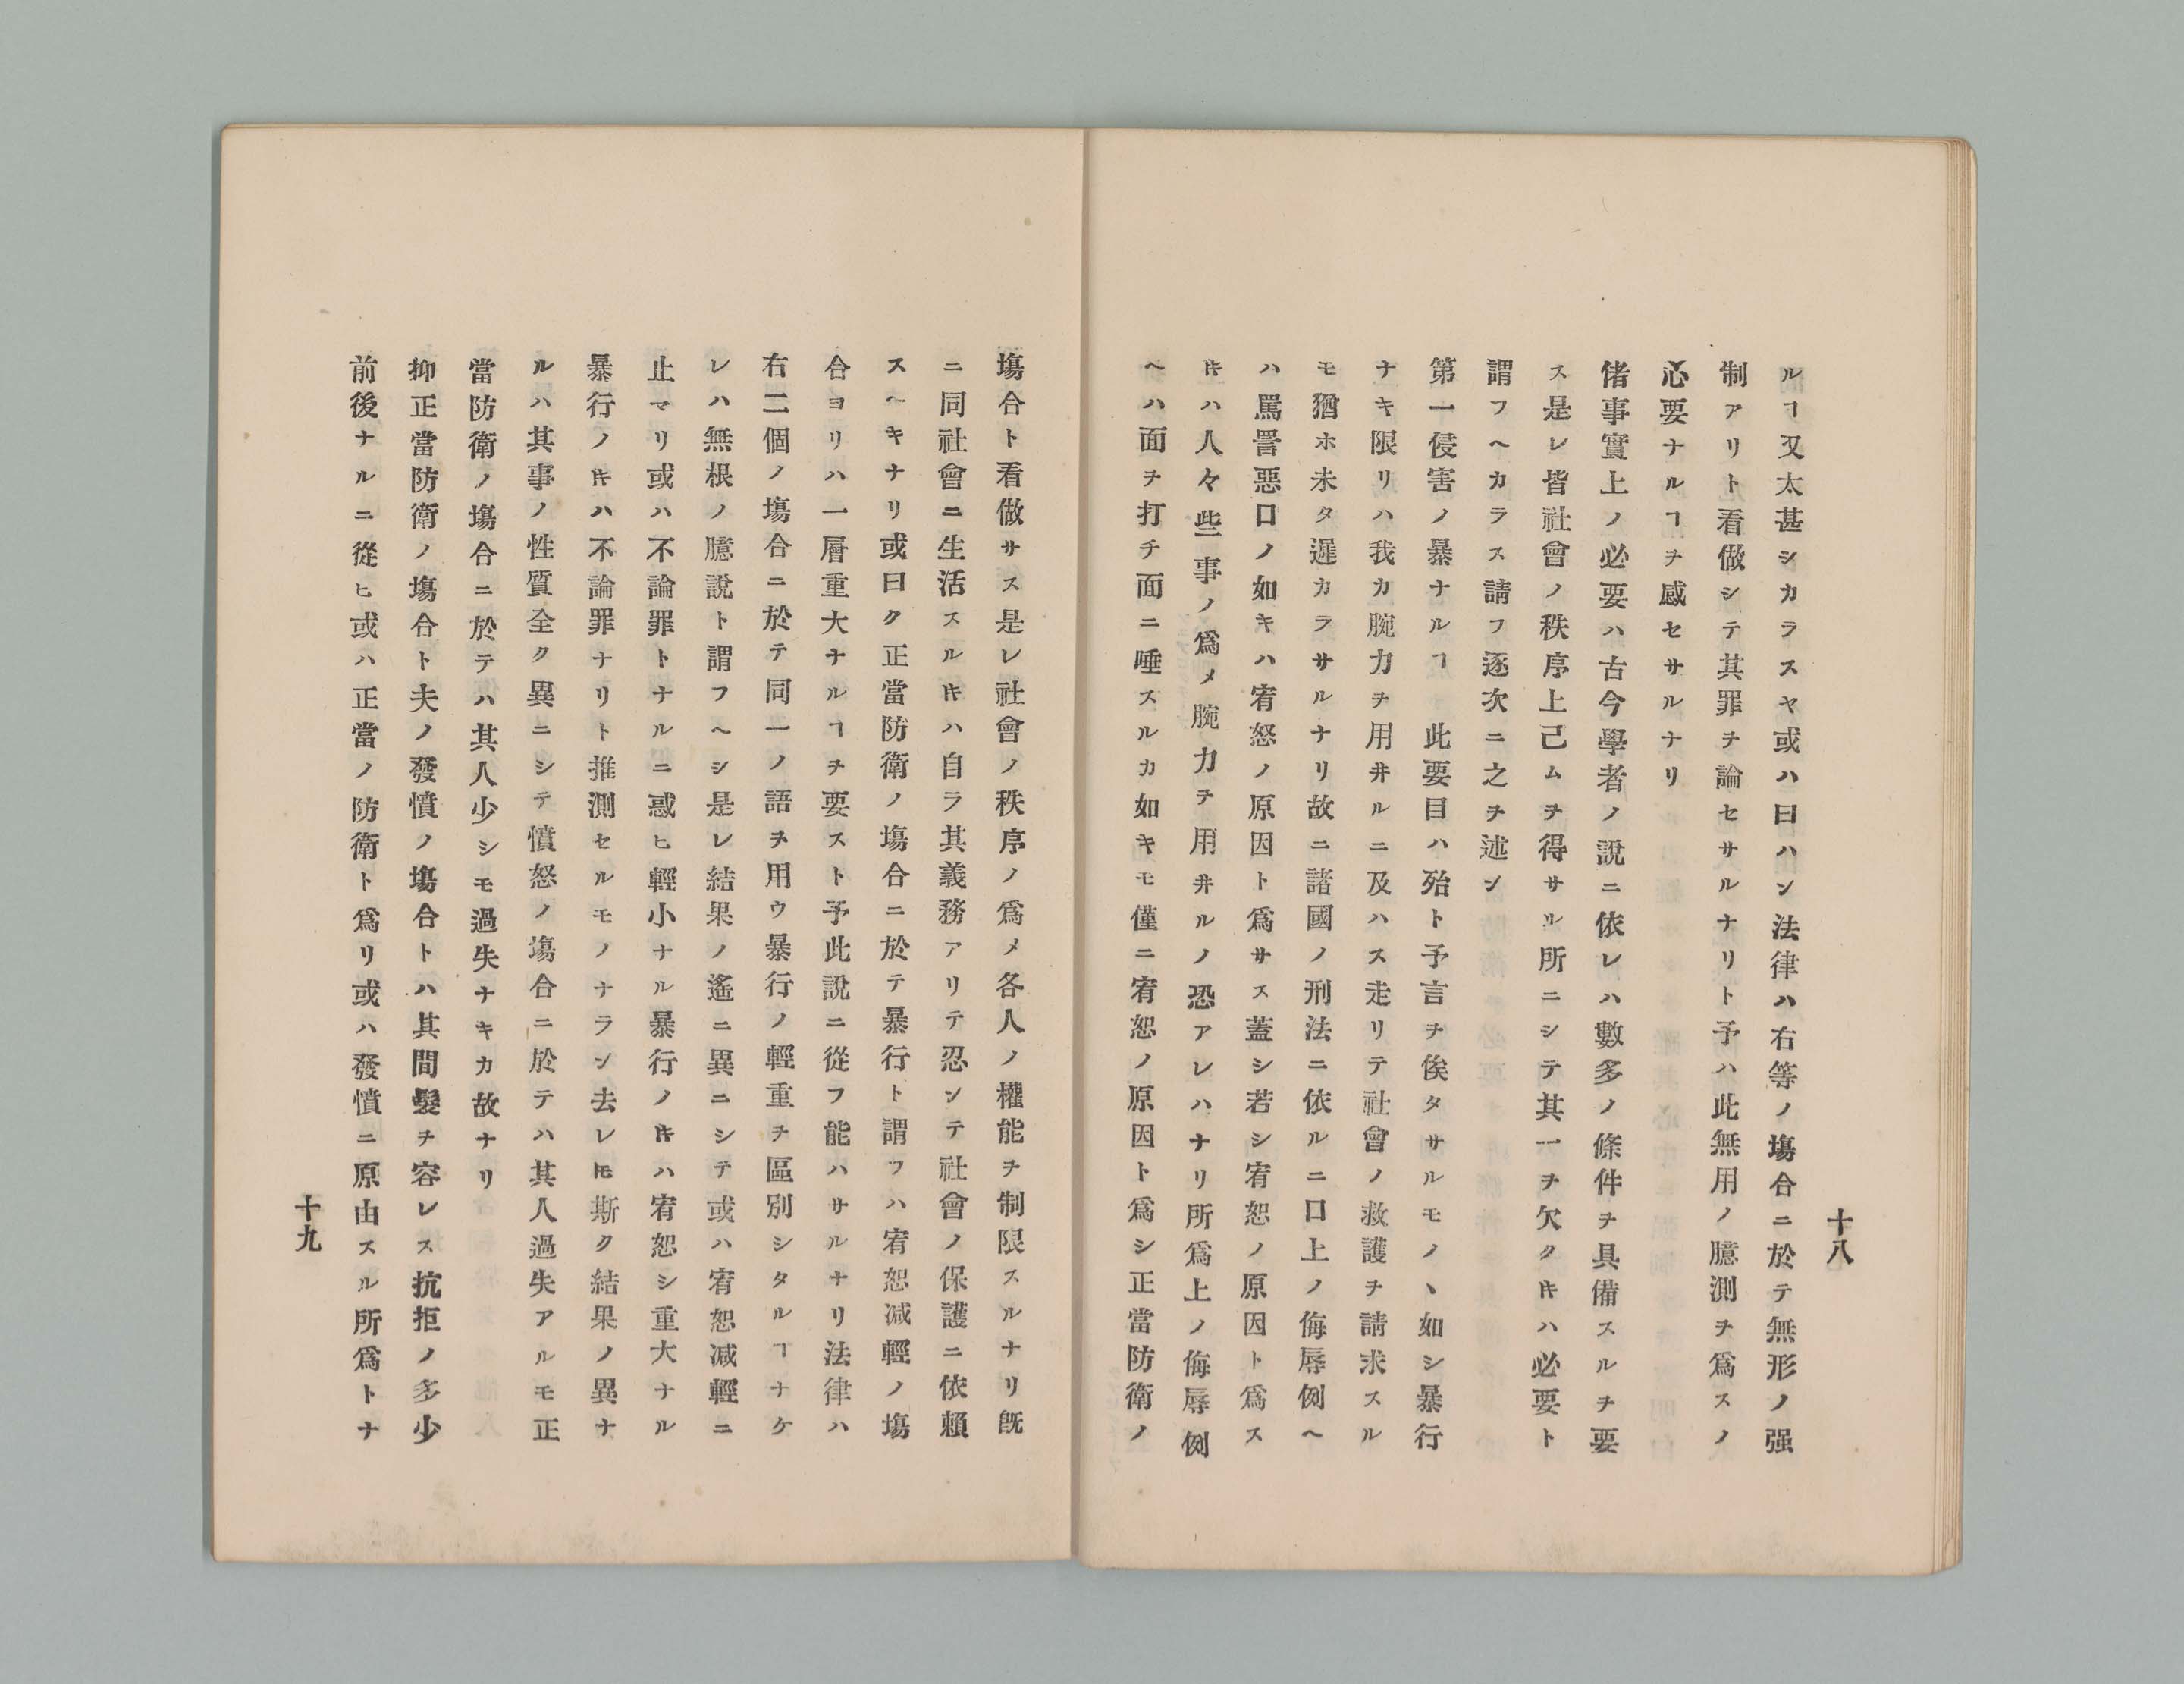 十八
ルヿ又太甚シカラスヤ或ハ曰ハン法律ハ右等ノ塲合ニ於テ無形ノ强
制アリト看做シテ其罪ヲ論セサルナリト予ハ此無用ノ臆測ヲ爲スノ
必要ナルヿヲ感セサルナリ
偖事實上ノ必要ハ古今學者ノ說ニ依レハ數多ノ條件ヲ具備スルヲ要
ス是レ皆社會ノ秩序上已ムヲ得サル所ニシテ其一ヲ欠ク𪜈ハ必要ト
謂フヘカラス請フ逐次ニ之ヲ述ン
第一侵害ノ暴ナルヿ 此要目ハ殆ト予言ヲ俟タサルモノヽ如シ暴行
ナキ限リハ我カ腕力ヲ用井ルニ及ハス走リテ社會ノ救護ヲ請求スル
モ猶ホ未タ遲カラサルナリ故ニ諸國ノ刑法ニ依ルニ口上ノ侮辱例ヘ
ハ罵詈惡口ノ如キハ宥怒ノ原因ト爲サス蓋シ若シ宥恕ノ原因ト爲ス
𪜈ハ人々些事ノ爲メ腕力ヲ用井ルノ恐アレハナリ所爲上ノ侮辱例
ヘハ面ヲ打チ面ニ唾スルカ如キモ僅ニ宥恕ノ原因ト爲シ正當防衛ノ
塲合ト看做サス是レ社會ノ秩序ノ爲メ各人ノ權能ヲ制限スルナリ旣
ニ同社會ニ生活スル𪜈ハ自ラ其義務アリテ忍ンテ社會ノ保護ニ依賴
スヘキナリ或曰ク正當防衛ノ塲合ニ於テ暴行ト謂フハ宥恕减輕ノ塲
合ヨリハ一層重大ナルヿヲ要スト予此說ニ從フ能ハサルナリ法律ハ
右二個ノ塲合ニ於テ同一ノ語ヲ用ウ暴行ノ輕重ヲ區別シタルヿナケ
レハ無根ノ臆說ト謂フヘシ是レ結果ノ遙ニ異ニシテ或ハ宥恕减輕ニ
止マリ或ハ不論罪トナルニ惑ヒ輕小ナル暴行ノ𪜈ハ宥恕シ重大ナル
暴行ノ𪜈ハ不論罪ナリト推測セルモノナラン去レ𪜈斯ク結果ノ異ナ
ルハ其事ノ性質全ク異ニシテ憤怒ノ塲合ニ於テハ其人過失アルモ正
當防衛ノ塲合ニ於テハ其人少シモ過失ナキカ故ナリ
抑正當防衛ノ塲合ト夫ノ發憤ノ塲合トハ其間髮ヲ容レス抗拒ノ多少
前後ナルニ從ヒ或ハ正當ノ防衛ト爲リ或ハ發憤ニ原由スル所爲トナ
十九